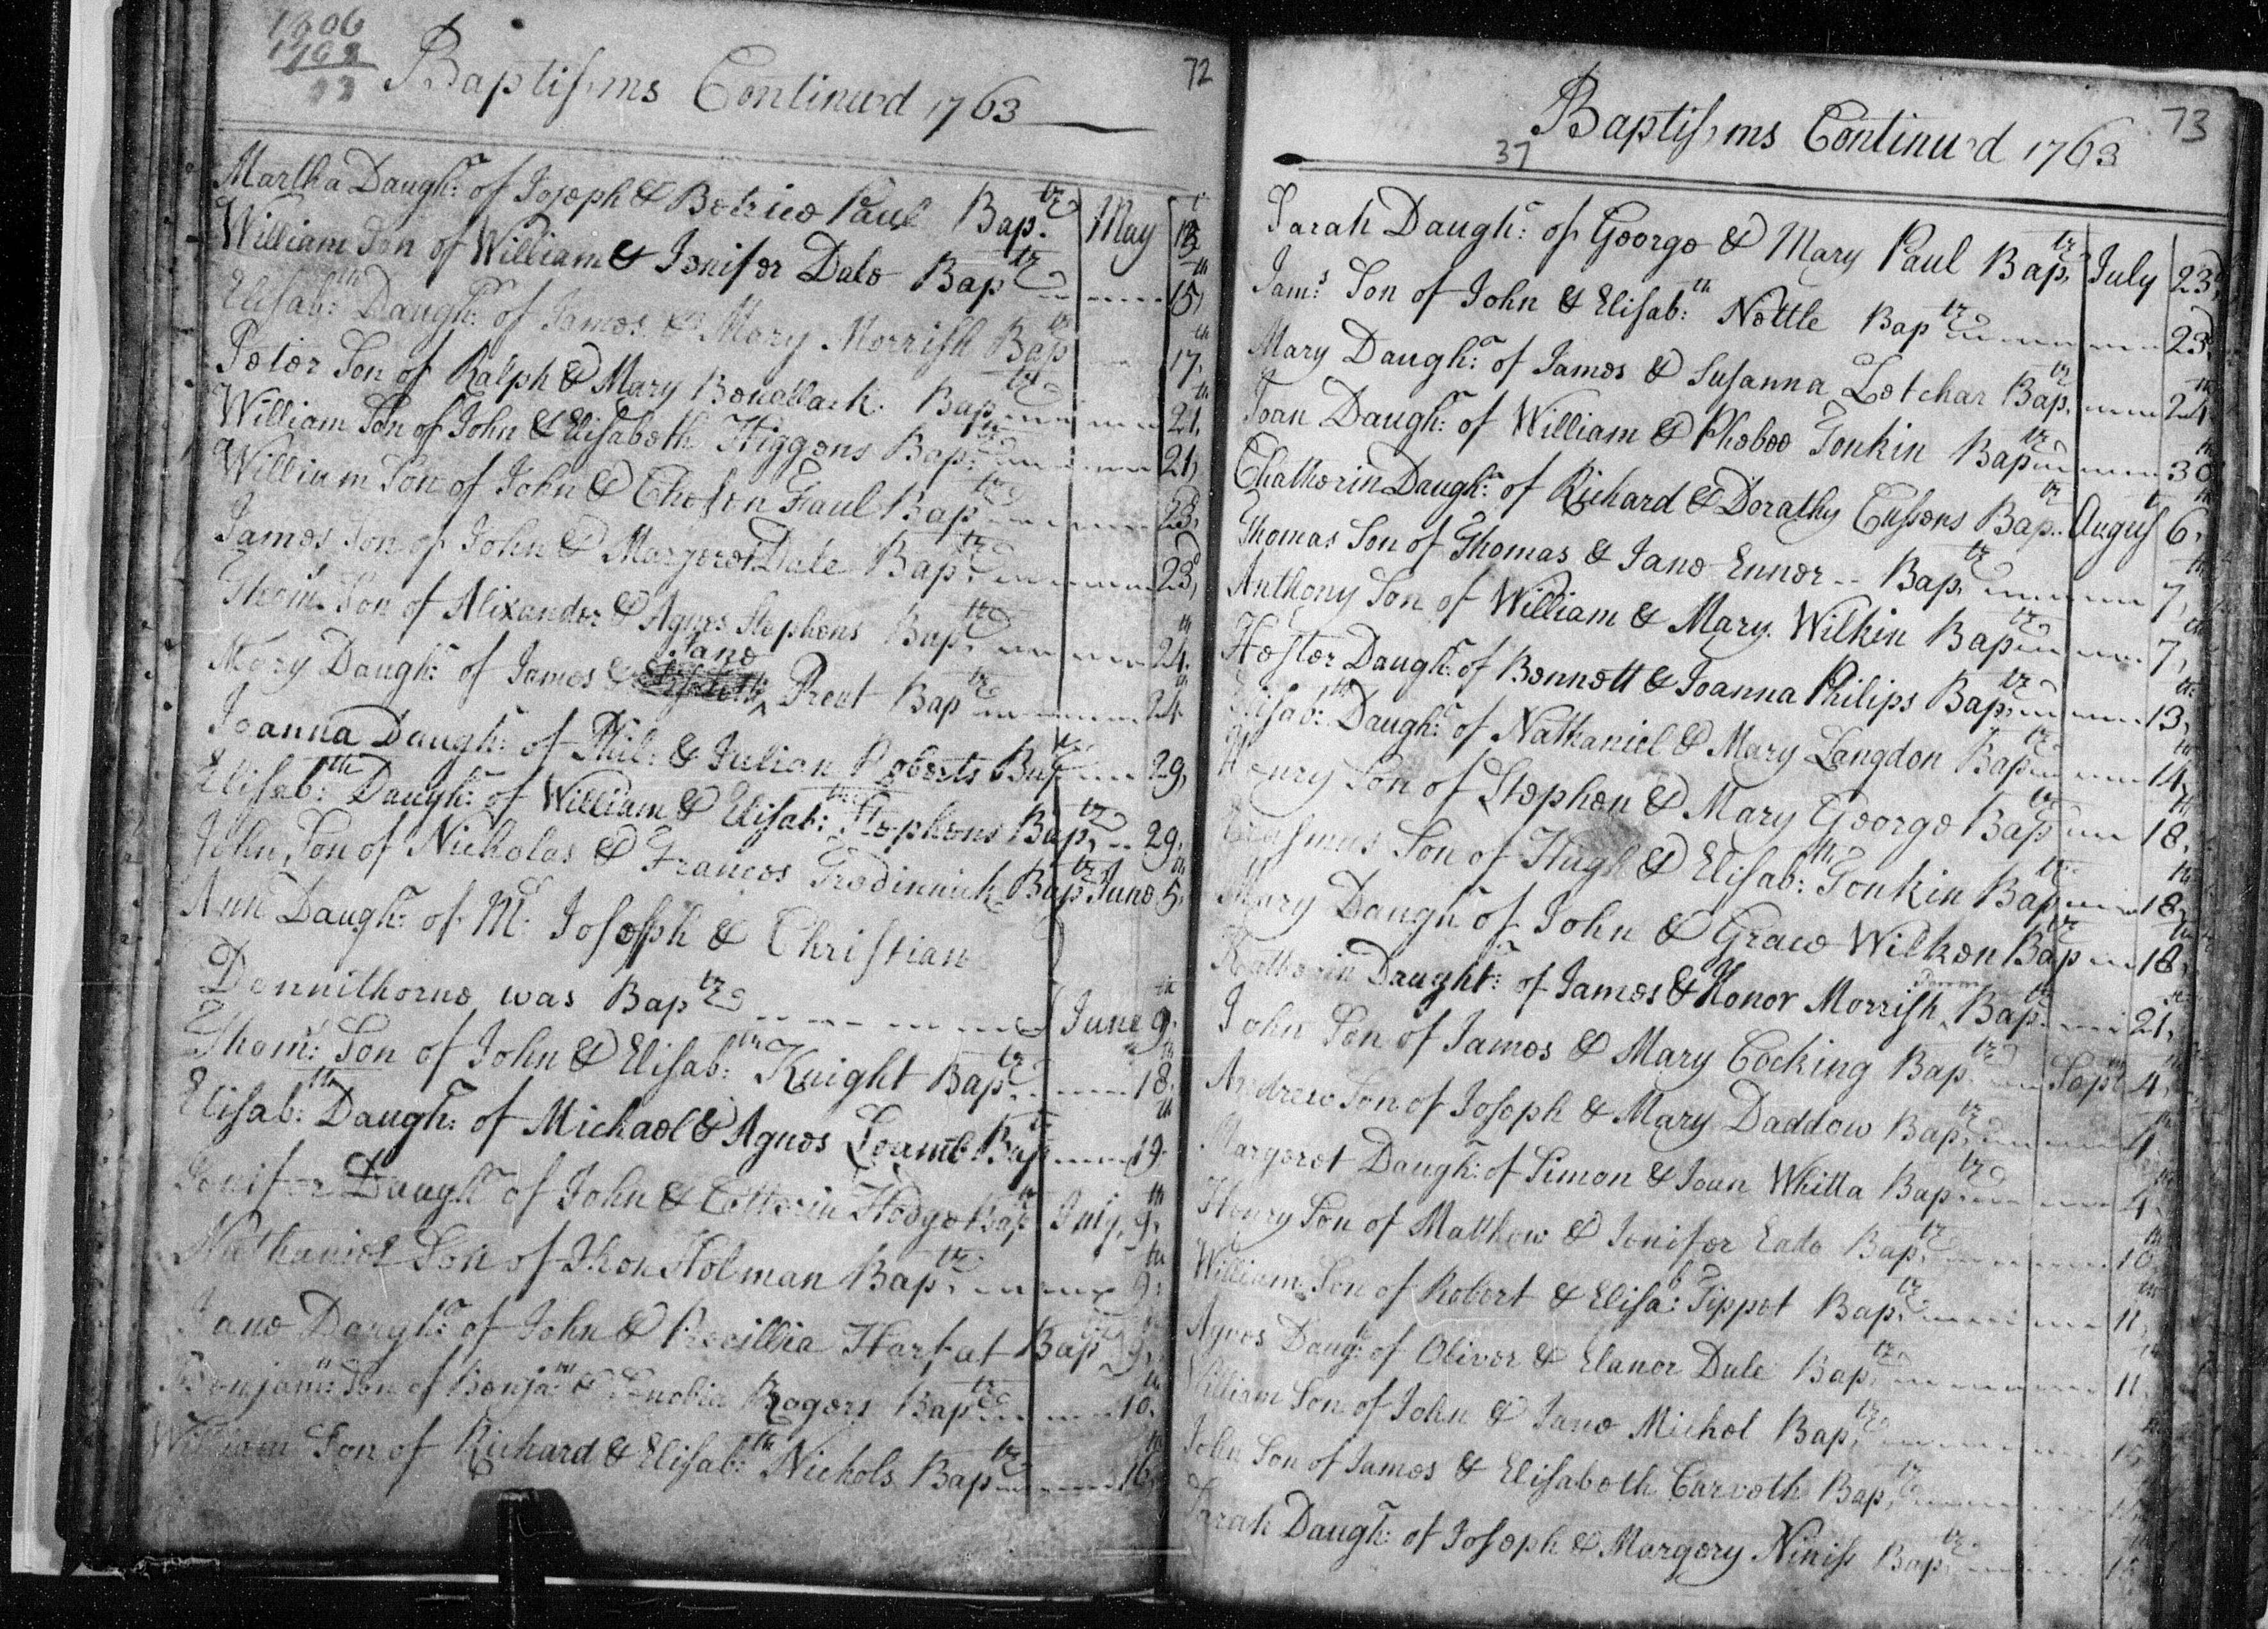 1806
1763
Baptisms Continu'd 1763
72
Martha Daugh.r of Joseph & Betrice Paul Bap.tz May 13
William Son of William & Jenifer Dale Bap.tz 15th
Elisab:th Daugh.r of James & Mary Morrish Bap.tz 17th
Peter Son of Ralph & Mary Benallack Bap.tz 21
William Son of John & Elisabeth Higgens Bap.tz 21
William Son of John & Chesen Faul Bap.tz 23
James Son of John & Margeret Dale Bap.tz 23
Thom.s Son of Alixander & Agnes Stephens Bap.tz 24th
Mary Daugh.r of James & Jane Prout Bap.tz 24th
Joanna Daugh.r of Phil: & Julian Roberts Bap.tz 29
Elisab:th Daugh.r of William & Elisab:th Stephens Bap.tz 29
John Son of Nicholas & Frances Tredinnick Bap.tz June 5th
Ann Daugh.r of M.r Joseph & Christian
Dennithorne was Bap.tz June 9th
Thom.s Son of John & Elisab:th Knight Bap.tz 18th
Elisab:th Daugh.r of Michael & Agnes Bap.tz 19th
Jenifer Daugh.r of John & Cattern Hodge Bap.tz July 9th
Nathaniel Son of Holman Bap.tz 9th
Jane Daugh.r of John & Precillia Harpat Bap.tz 9th
Benjam:n Son of Benja:m & Senobia Rogers Bap.tz 10th
William Son of Richard & Elisab:th Nichols Bap.tz 16th
73
Baptisms Continu'd 1763
37
Sarah Daugh.r of George & Mary Paul Bap.tz July 23
Jam.s Son of John & Elisab:th Nettle Bap.tz 23
Mary Daugh.r of James & Susanna Letchar Bap.tz 24th
Joan Daugh.r of William & Pheboe Tonkin Bap.tz 30th
Chatherin Daugh.r of Richard & Dorathy Cussens Bap.tz August 6th
Thomas Son of Thomas & Jane Ennor Bap.tz 7th
Anthony Son of William & Mary Wilkin Bap.tz 7th
Hester Daugh.r of Bennett & Joanna Philips Bap.tz 13th
Elisab:th Daugh.r of Nathaniel & Mary Langdon Bap.tz 14th
Henry Son of Stephen & Mary George Bap.tz 18th
Erasmus Son of Hugh & Elisab:th Tonkin Bap.tz 18th
Mary Daugh.r of John & Grace Wilken Bap.tz 18th
Katherin Daught.r of James & Honor Morrish Bap.tz 21
John Son of James & Mary Cocking Bap.tz Sept 4th
Andrew Son of Joseph & Mary Daddow Bap.tz 4th
Margeret Daugh.r of Simon & Joan Whitta Bap.tz 4th
Henry Son of Mathew & Jenifer Eade Bap.tz 10th
William Son of Robert & Elisa:b Tippet Bap.tz 11th
Agnes Daug.r of Oliver & Elanor Dale Bap.tz 11th
William Son of John & Jane Michel Bap.tz 15
John Son of James & Elisabeth Carveth Bap.tz
Sarah Daugh.r of Joseph & Margery Niniss Bap.tz 15